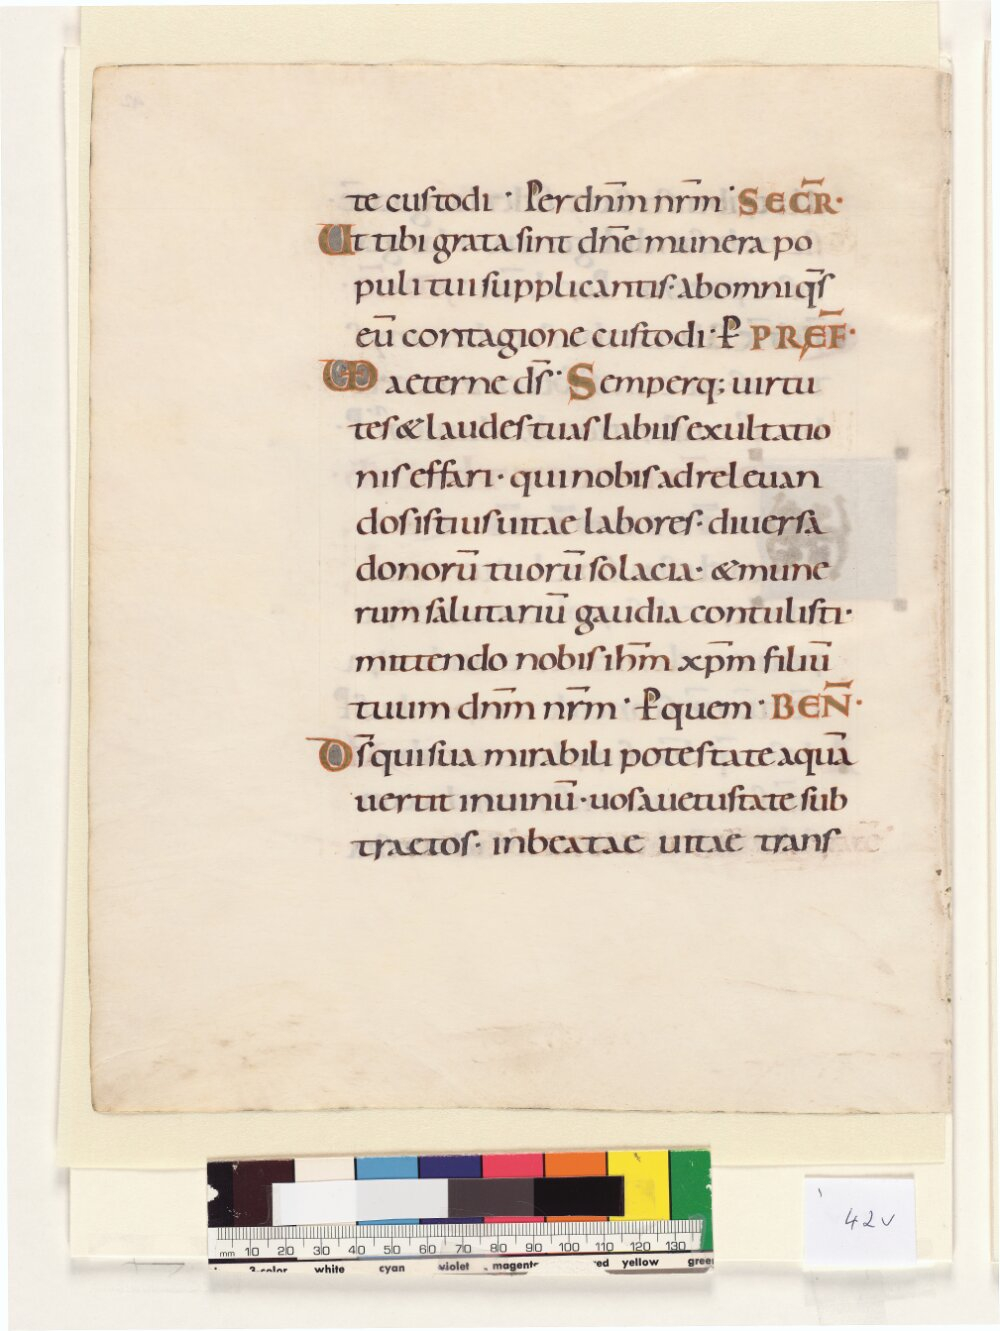 te custodi · Per dnm̄ nrm̄ · SECR̄·
Ut tibi grata sint dnē munera po
puli tui supplicantis· ab omni qs̄
eū contagione custodi· P̱ PREF̄·
VD aeterne ds̄· Semperq; uirtu
tes & laudes tuas labiis exultatio
nis effari· qui nobis ad releuan
dos istius uitae labores· diuersa
donorū tuorū solacia· & mune
rum salutariū gaudia contulisti·
mittendo nobis ihm̄ xpm̄ filiū
tuum dnm̄ nrm̄ · P̱ quem · BEN̄·
Ds̄ qui sua mirabili potestate aquā
uertit in uinū· uos a uetustate sub
tractos· in beatae uitae trans
42v
mm 10 20 30 40 50 60 70 80 90 100 110 120 130
3-color white cyan violet magenta red yellow green